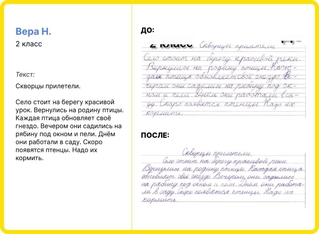 Вера Н.
2 класс
Текст:
Скворцы прилетели.
Село стоит на берегу красивой
урок. Вернулись на родину птицы.
Каждая птица обновляет своё
гнездо. Вечером они садились на
рябину под окном и пели. Днём
они работали в саду. Скоро
появятся птенцы. Надо их
кормить.
ДО:
2 класс Скворцы прилетели.
Село стоит на берегу красивой реки.
Вернулись на родину птицы. Каж-
дая птица обновляет своё гнездо. Ве-
чером они садились на рябину под ок-
ном и пели. Днём они работали в са-
ду. Скоро появятся птенцы. Надо их
кормить.
ПОСЛЕ:
Скворцы прилетели.
Село стоит на берегу красивой реки.
Вернулись на родину птицы. Каждая птица
обновляет своё гнездо. Вечером они садились
на рябину под окном и пели. Днём они работа-
ли в саду. Скоро появятся птенцы. Надо их
кормить.